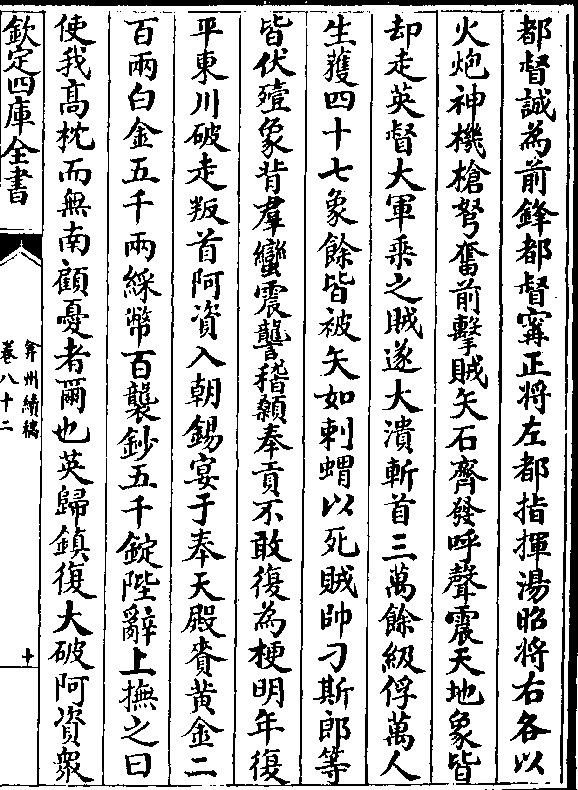 都督誠為前鋒都督甯正將左都指揮湯昭將右各以
火炮神機槍弩奮前擊賊矢石齊發呼聲震天地象皆
却走英督大軍乘之賊遂大潰斬首三萬餘級俘萬人
生獲四十七象餘皆被矢如刺蝟以死賊帥刁斯郎等
皆伏殪象背羣蠻震讋稽顙奉貢不敢復為梗明年復
平東川破走叛酋阿資入朝錫宴于奉天殿賚黄金二
百兩白金五千兩綵幣百襲鈔五千錠陛辭上撫之曰
使我髙枕而無南顧憂者爾也英歸鎮復大破阿資衆
欽定四庫全書
弇州續稿
卷八十二
十